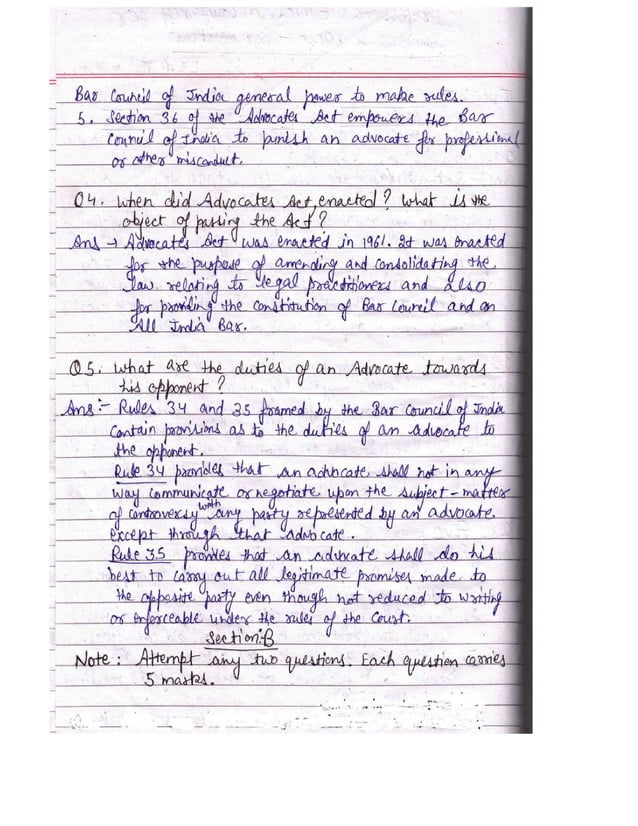 Bar Council of India general power to make rules.
5. Section 36 of the Advocates Act empowers the Bar
Council of India to punish an advocate for professional
or other misconduct.
Q4. When did Advocates Act, enacted? What is the
object of passing the Act?
Ans → Advocates Act was enacted in 1961. It was enacted
for the purpose of amending and consolidating the
law relating to legal practitioners and also
for providing the constitution of Bar Council and an
All India Bar.
Q5. What are the duties of an Advocate towards
his opponent?
Ans:- Rules 34 and 35 framed by the Bar Council of India
Contain provisions as to the duties of an advocate to
the opponent.
Rule 34 provides that an advocate shall not in any
way communicate or negotiate upon the subject-matter
of controversy with any party represented by an advocate,
Except through that advocate.
Rule 35 provides that an advocate shall do his
best to carry out all legitimate promises made to
the opposite party even though not reduced to writing
or enforceable under the rules of the Court.
Section:B
Note: Attempt any two questions. Each question carries
5 marks.